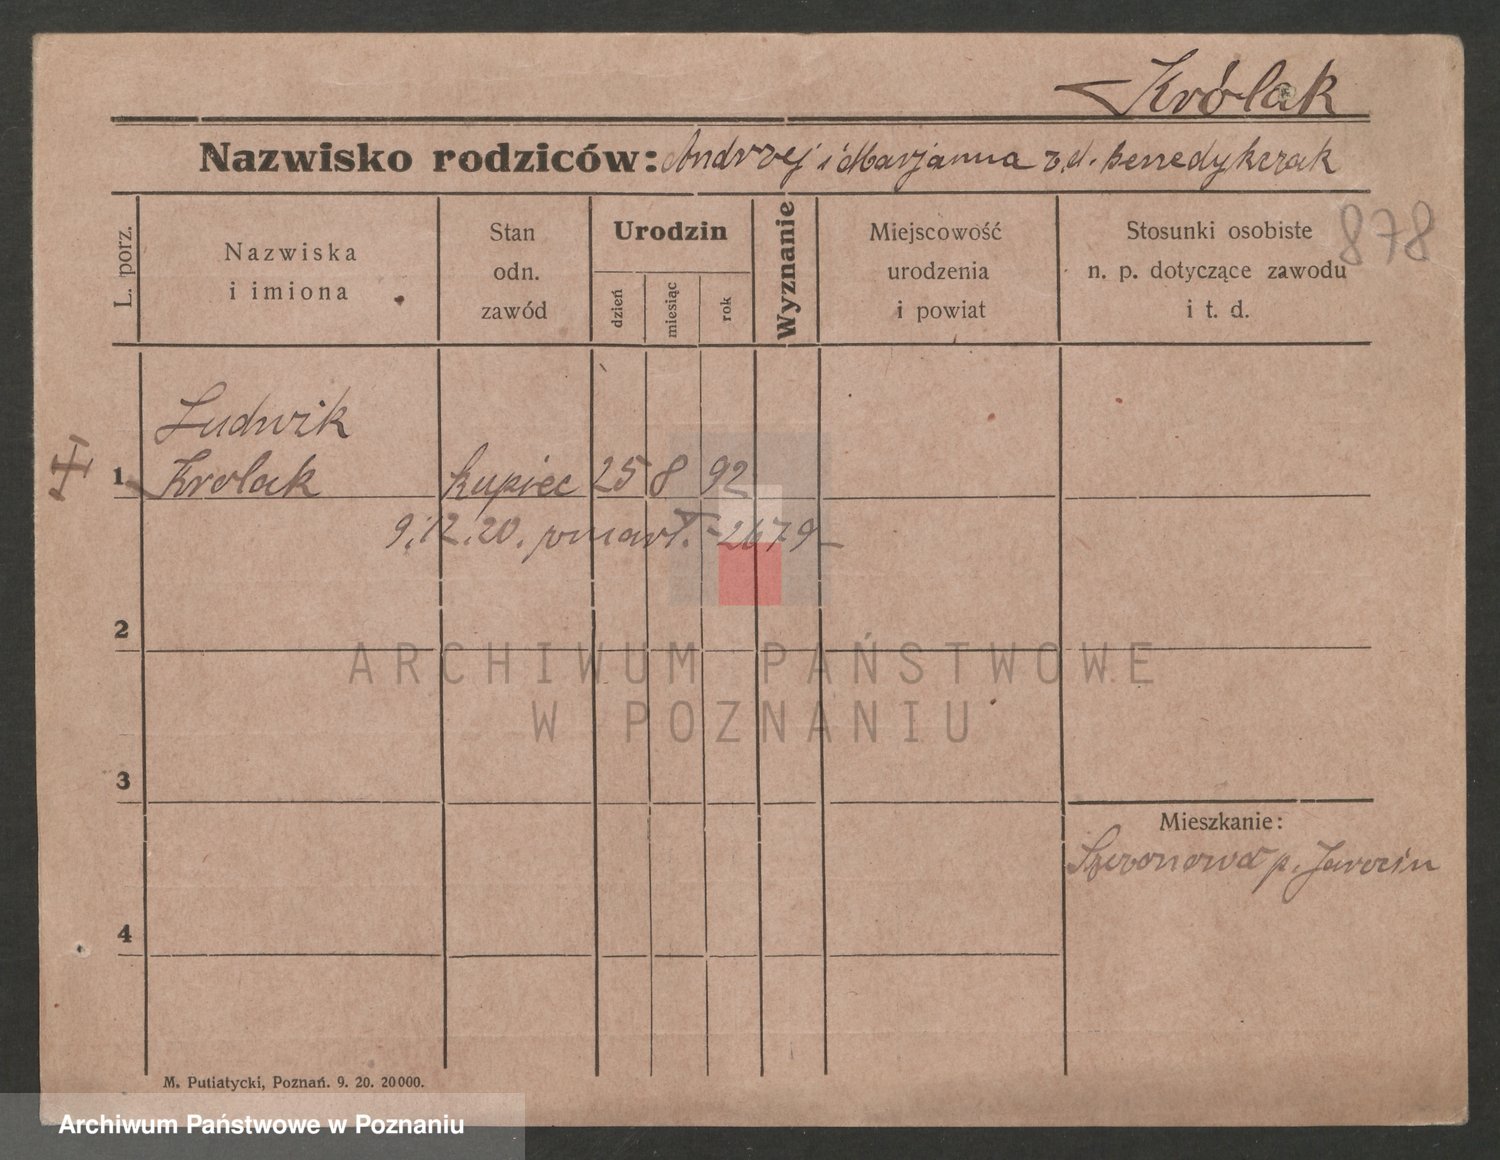 Królak
Nazwisko rodziców: Andrzej i Marjanna z d. Benedykczak
878
L. porz.
Nazwiska
i imiona
Stan
odn.
zawód
Urodzin
dzień
miesiąc
rok
Wyznanie
Miejscowość
urodzenia
i powiat
Stosunki osobiste
n. p. dotyczące zawodu
i t. d.
Ludwik
1 Krolak kupiec 25 8 92
9.12.20. zmarł. - 2679
2
ARCHIWUM PAŃSTWOWE
W POZNANIU
3
Mieszkanie:
p. Jarocin
4
M. Putiatycki, Poznań. 9. 20. 20000.
Archiwum Państwowe w Poznaniu